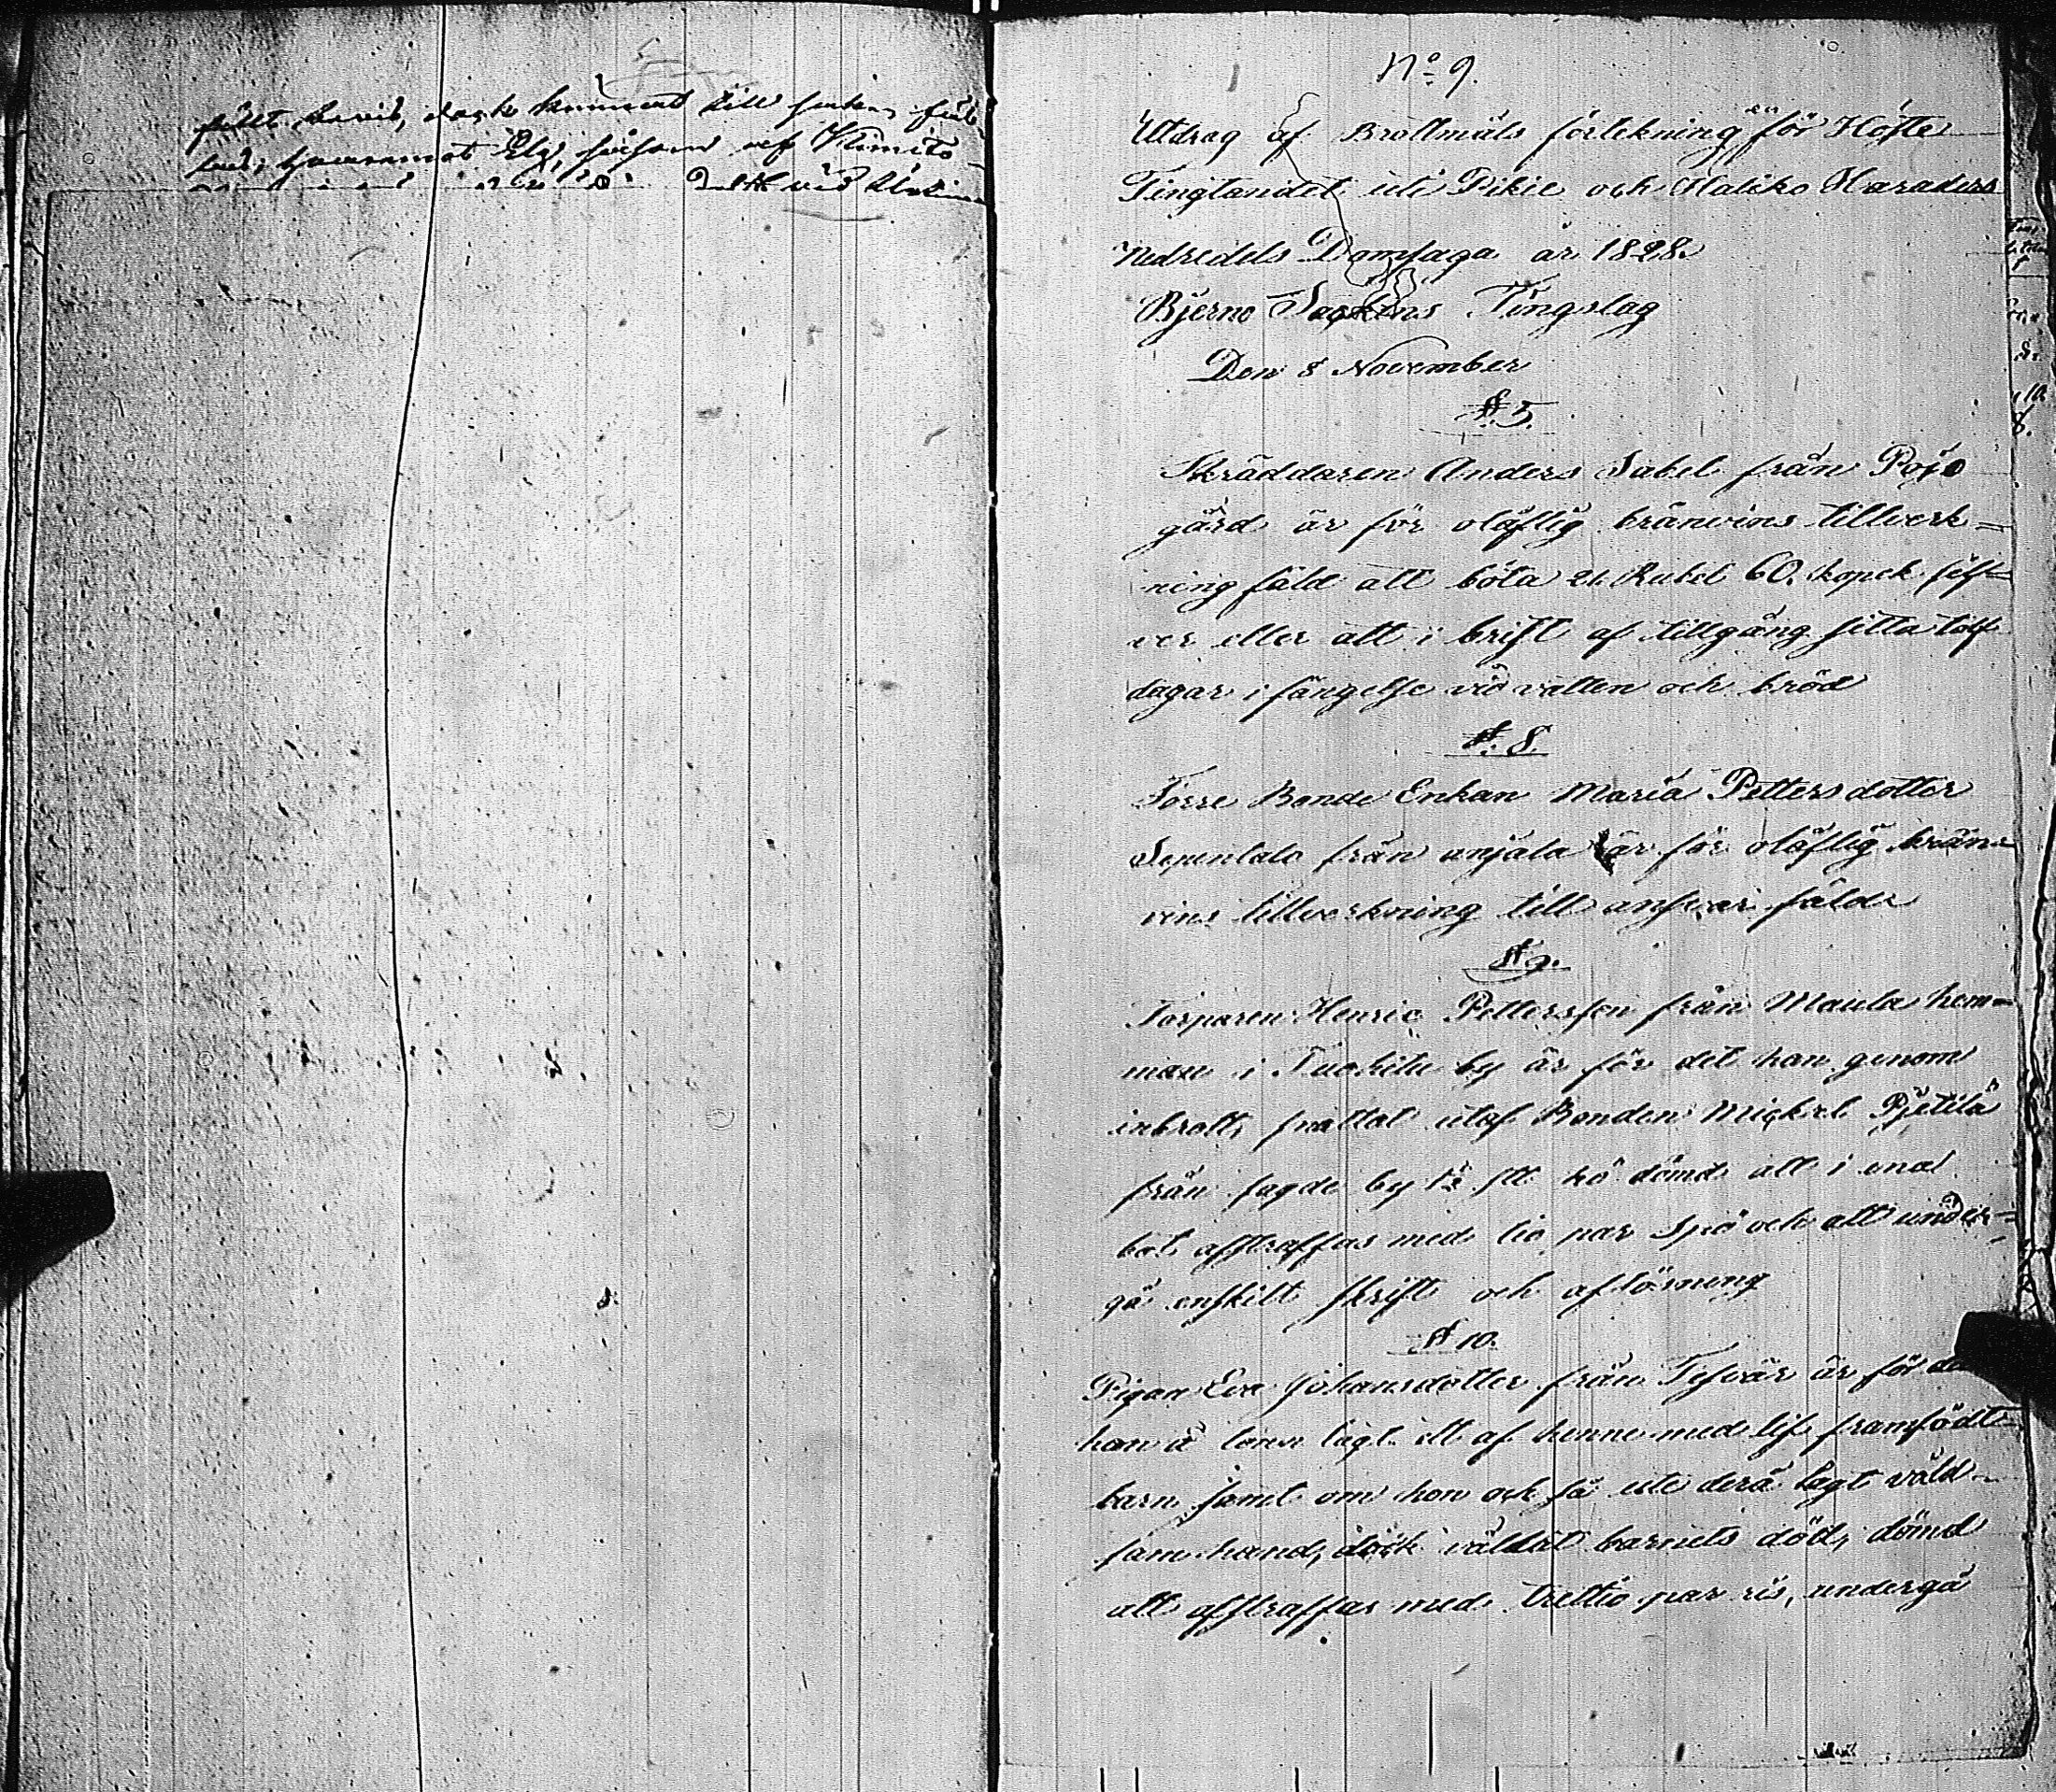 dock kommit till
af Kimito
N:o 9.
Utdrag af Brottmåls förtekningen för Höste
Tingtandet uti Pikie och Haliko Häraders
Nedredels Domsaga år 1828.
Bjerno Tingslag
Den 8 November
§. 5.
Skräddaren Anders Sabel från Pojo
gård är för olöflig bränvins tillverk=
ning fäld att böta 21 Rubel 60. kopek silf=
ver eller att i brist af tillgång sitta tolf
dagar i fängelse vid vatten och bröd
§. 8.
Förre Bonde Enkan Maria Pettersdotter
från är för olöflig brän=
vins tillverkning till ansvar fäld
§ 9.
Torparen Henric Pettersson från Maula hem=
man i by är för det han genom
inbrott, snattat utaf Bonden Mickel Pjetilä
från sagde by ko dömd att i ena
bot afstraffas med tio par Spö och att under=
gå enskilt skrift och aflösning
§ 10.
Pigan Eva Johansdotter från är för
hon å lönn lagt ett af henne med lif framfödt
barn samt om hon ock så ute derå lagt våld=
sam hand, dock vållat barnets död, dömd
att afstraffas med trettio par ris, undergå